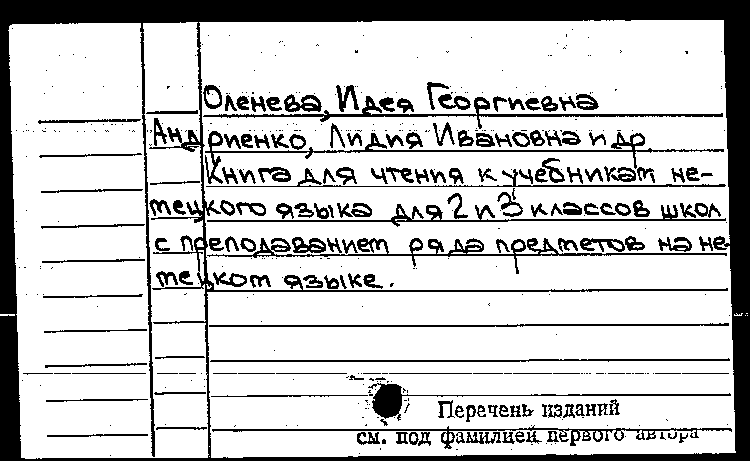 Оленева, Идея Георгиевна
Андриенко, Лидия Ивановна и др.
Книга для чтения к учебникам не-
мецкого языка для 2 и 3 классов школ
с преподаванием ряда предметов на не-
мецком языке.
Перечень изданий
см. под фамилией первого автора